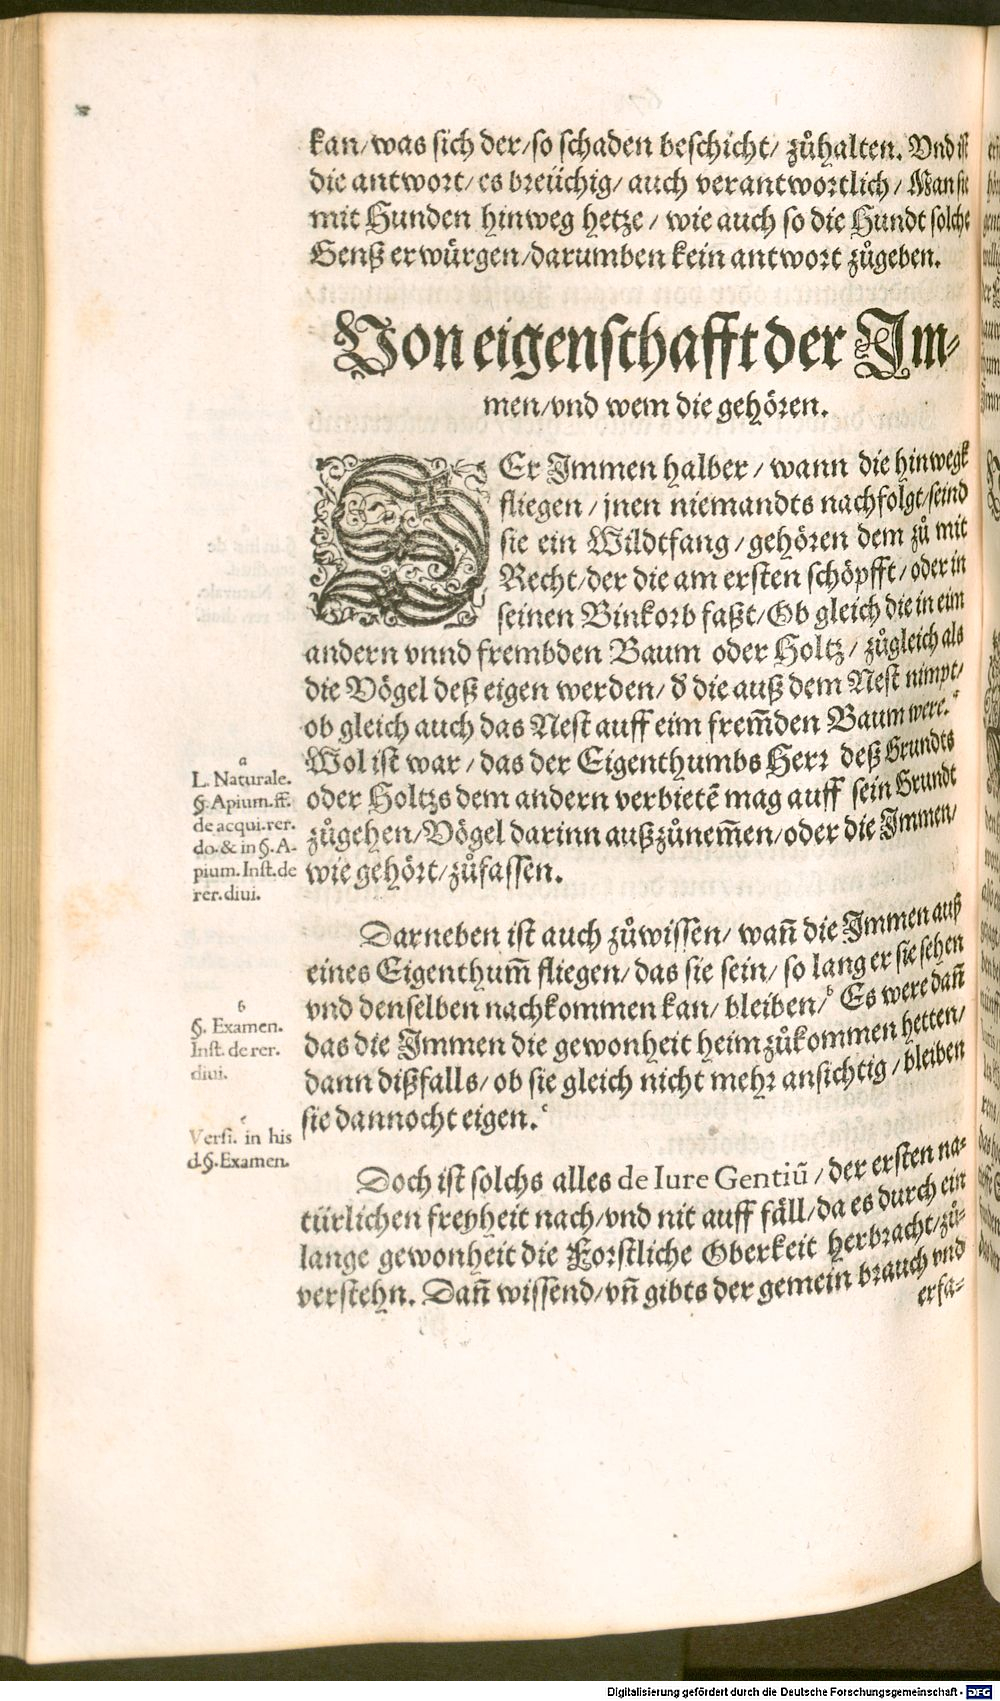 kan/ was sich der/ so schaden beschicht/ zůhalten. Vnd ist
die antwort/ es breüchig/ auch verantwortlich/ Man sie
mit Hunden hinweg hetze/ wie auch so die Hundt solche
Genß erwürgen/ darumben kein antwort zůgeben.
Von eigenschafft der Im⸗
men/ vnd wem die gehören.
DEr Immen halber/ wann die hinwegk
fliegen/ jnen niemandts nachfolgt/ seind
sie ein Wildtfang/ gehören dem zů mit
Recht/ der die am ersten schöpfft/ oder in
seinen Binkorb faßt/ Ob gleich die in eim
andern vnnd frembden Baum oder Holtz/ zůgleich als
die Vögel deß eigen werden/ d̕ die auß dem Nest nimpt/
ob gleich auch das Nest auff eim frem̃den Baum were. a
Wol ist war/ das der Eigenthumbs Herr deß Grundts
oder Holtzs dem andern verbietẽ mag auff sein Grundt
zůgehen/ Vögel darinn außzůnem̃en/ oder die Immen/
wie gehört/ zůfassen.
a
L. Naturale.
§. Apium. ff.
de acqui. rer.
do. & in §. A-
pium. Inst. de
rer. diui.
Darneben ist auch zůwissen/ wañ die Immen auß
eines Eigenthum̃ fliegen/ das sie sein/ so lang er sie sehen
vnd denselben nachkommen kan/ bleiben/ b Es were dañ
das die Immen die gewonheit heimzůkommen hetten/
dann dißfalls/ ob sie gleich nicht mehr ansichtig/ bleiben
sie dannocht eigen. c
b
§. Examen.
Inst. de rer.
diui.
c
Versi. in his
d. §. Examen.
Doch ist solchs alles de Iure Gentiũ/ der ersten na⸗
türlichen freyheit nach/ vnd nit auff fäll/ da es durch ein
lange gewonheit die Forstliche Oberkeit herbracht/ zů⸗
verstehn. Dañ wissend/ vñ gibts der gemein brauch vnd
erfa⸗
Digitalisierung gefördert durch die Deutsche Forschungsgemeinschaft - DFG